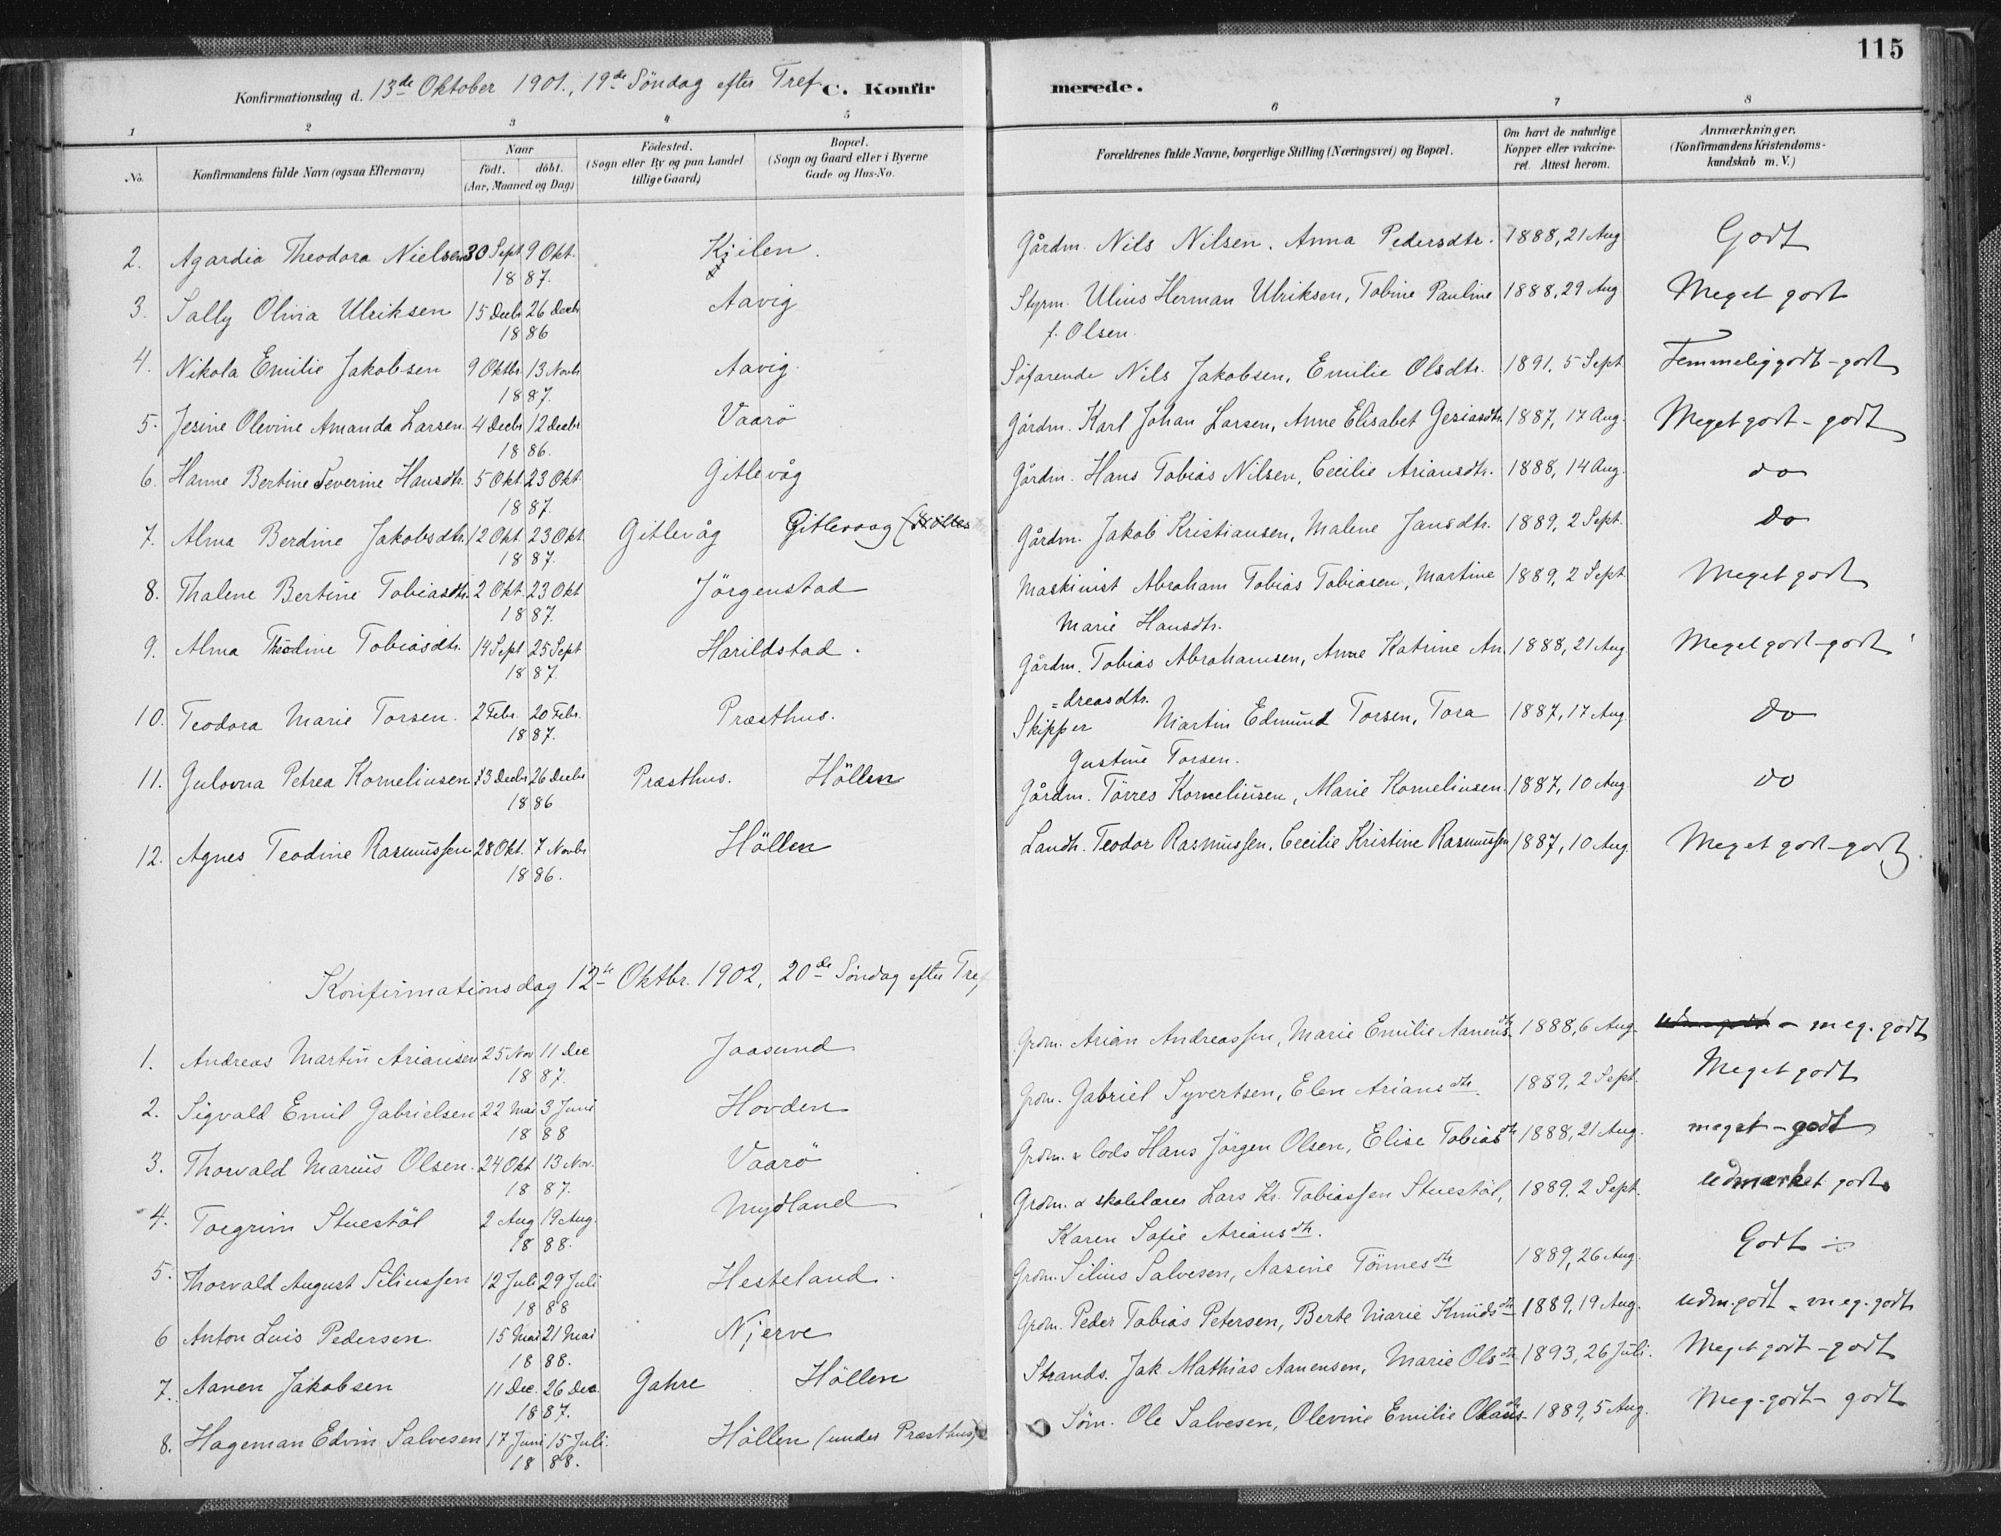 115
Konfirmationsdag d. 13de Oktober 1901., 19de Söndag efter Tref C. Konfirmerede.
1 2 3 4 5 6 7 8
No. Konfirmandens fulde Navn (ogsaa Efternavn) Naar födt. döbt. (Aar, Maaned og Dag) Födested. (Sogn eller By og paa Landet tillige Gaard) Bopæl. (Sogn og Gaard eller i Byerne Gade og Hus-No. Forældrenes fulde Navne, borgerlige Stilling (Næringsvei) og Bopæl. Om havt de naturlige Kopper eller vakcineret. Attest herom. Anmærkninger. (Konfirmandens Kristendomskundskab m. V.)
2. Agardia Theodora Nielsen 30 Sept 9 Okt. 1887. Kjilen. Gårdm. Nils Nilsen. Anna Pedersdtr. 1888, 21 Aug Godt
3. Sally Olivia Ulriksen 15 Decbr 26 Decbr 1886 Aavig Styrm. Ulius Herman Ulriksen, Tobine Pauline 1888, 29 Aug Meget godt
f. Olsen.
4. Nikola Emilie Jakobsen 9 Oktbr. 13 Novbr 1887. Aavig. Söfarende Nils Jakobsen, Emilie Olsdtr. 1891. 5 Sept Temmelig godt - godt
5. Jesine Olevine Amanda Larsen. 4 Decbr 12 Decbr 1886. Vaarö Gårdm. Karl Johan Larsen, Anne Elisabet Gesiasdtr. 1887, 17 Aug. Meget godt - godt
6. Hanne Bertine Severine Hansdtr. 5 Okt. 23 Okt. 1887. Gitlevåg Gårdm. Hans Tobias Nilsen, Cecilie Ariansdtr. 1888, 14 Aug. do
7. Alma Berdine Jakobsdtr. 12 Okt. 23 Okt 1887. Gitlevåg Gitlevaag Gårdm. Jakob Kristiansen, Malene Jansdtr. 1889, 2 Sept. do
8. Thalene Bertine Tobiasdtr. 2 Okt. 23 Okt 1887. Jörgenstad Maskinist Abraham Tobias Tobiasen, Martine 1889, 2 Sept. Meget godt
Marie Hansdtr.
9. Alma Theodine Tobiasdtr. 14 Sept 25 Sept 1887. Harildstad. Gårdm. Tobias Abrahamsen, Anne Katrine An 1888, 21 Aug Meget godt - godt
=dreasdtr.
10. Teodora Marie Torsen. 2 Febr. 20 Febr. 1887. Præsthus. Skipper Martin Edmund Torsen, Tora 1887, 17 Aug. do
Gustine Torsen.
11. Gulovna Petrea Korneliusen 13 Decbr 26 Decbr 1886 Præsthus. Höllen Gårdm. Törres Korneliusen, Marie Korneliusen. 1887, 10 Aug. do
12. Agnes Teodine Rasmussen 28 Okt. 7 Novbr 1886. Höllen Landh. Teodor Rasmussen. Cecilie Kristine Rasmussen 1887, 10 Aug. Meget godt - godt.
Konfirmationsdag 12te Oktbr. 1902, 20de Söndag efter Tref
1. Andreas Martin Ariansen 25 Nov 11 Dec 1887. Jaasund Grdm. Arian Andreassen, Marie Emilie Aanensdtr 1888, 6 Aug. udm. godt - meg. godt
2. Sigvald Emil Gabrielsen 22 Mai 3 Juni 1888 Hovden Grdm. Gabriel Syvertsen, Elen Ariansdtr. 1889, 2 Sept. Meget godt
3. Thorvald Marius Olsen. 24 Okt 13 Nov. 1887. Vaarö Grdm. & Lods Hans Jörgen Olsen, Elise Tobiasdtr 1888, 21 Aug. meget - godt
4. Torgrim Stuestöl 2 Aug 19 Aug. 1888. Mydland Grdm. & skolelærer Lars Kr. Tobiassen Stuestöl, 1889. 2 Sept. udmærket godt.
Karen Sofie Ariansdtr.
5. Thorvald August Siliussen 12 Juli 29 Juli 1888 Hesteland. Grdm. Silius Salvesen, Aasine Tönnesdtr 1889, 26 Aug. Godt
6 Anton Luis Pedersen. 15 Mai 21 Mai 1888. Njerve Grdm. Peder Tobias Petersen, Berte Marie Knudsdtr 1889, 19 Aug. udm. godt - meg. godt
7. Aanen Jakobsen 11 Dec. 26 Dec 1887. Gahre Höllen Strands. Jak Mathias Aanensen, Marie Olsdtr 1893, 26 Juli. Meget godt - godt
8. Hageman Edvin Salvesen 17 Juni 15 Juli. 1888. Höllen (under Præsthus) Söm. Ole Salvesen, Olevine Emilie Olausdtr 1889, 5 Aug. Meg. godt - godt